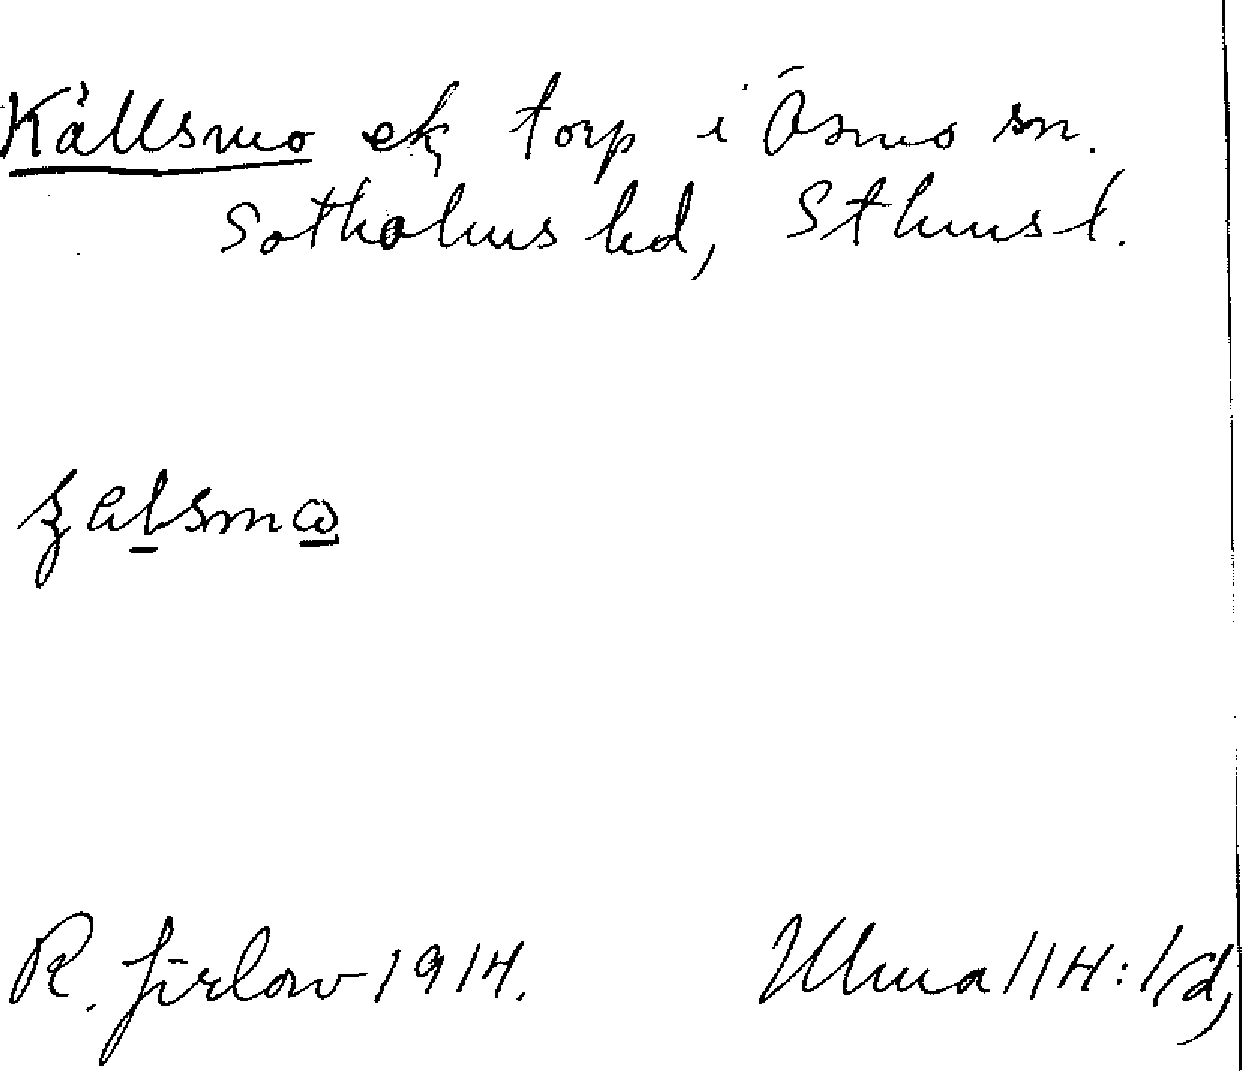 Källsmo ek torp i Ösmo sn.
Sotholms hd, Sthms l.
R. Jirlow 1914.
Ulma 114:1 d,